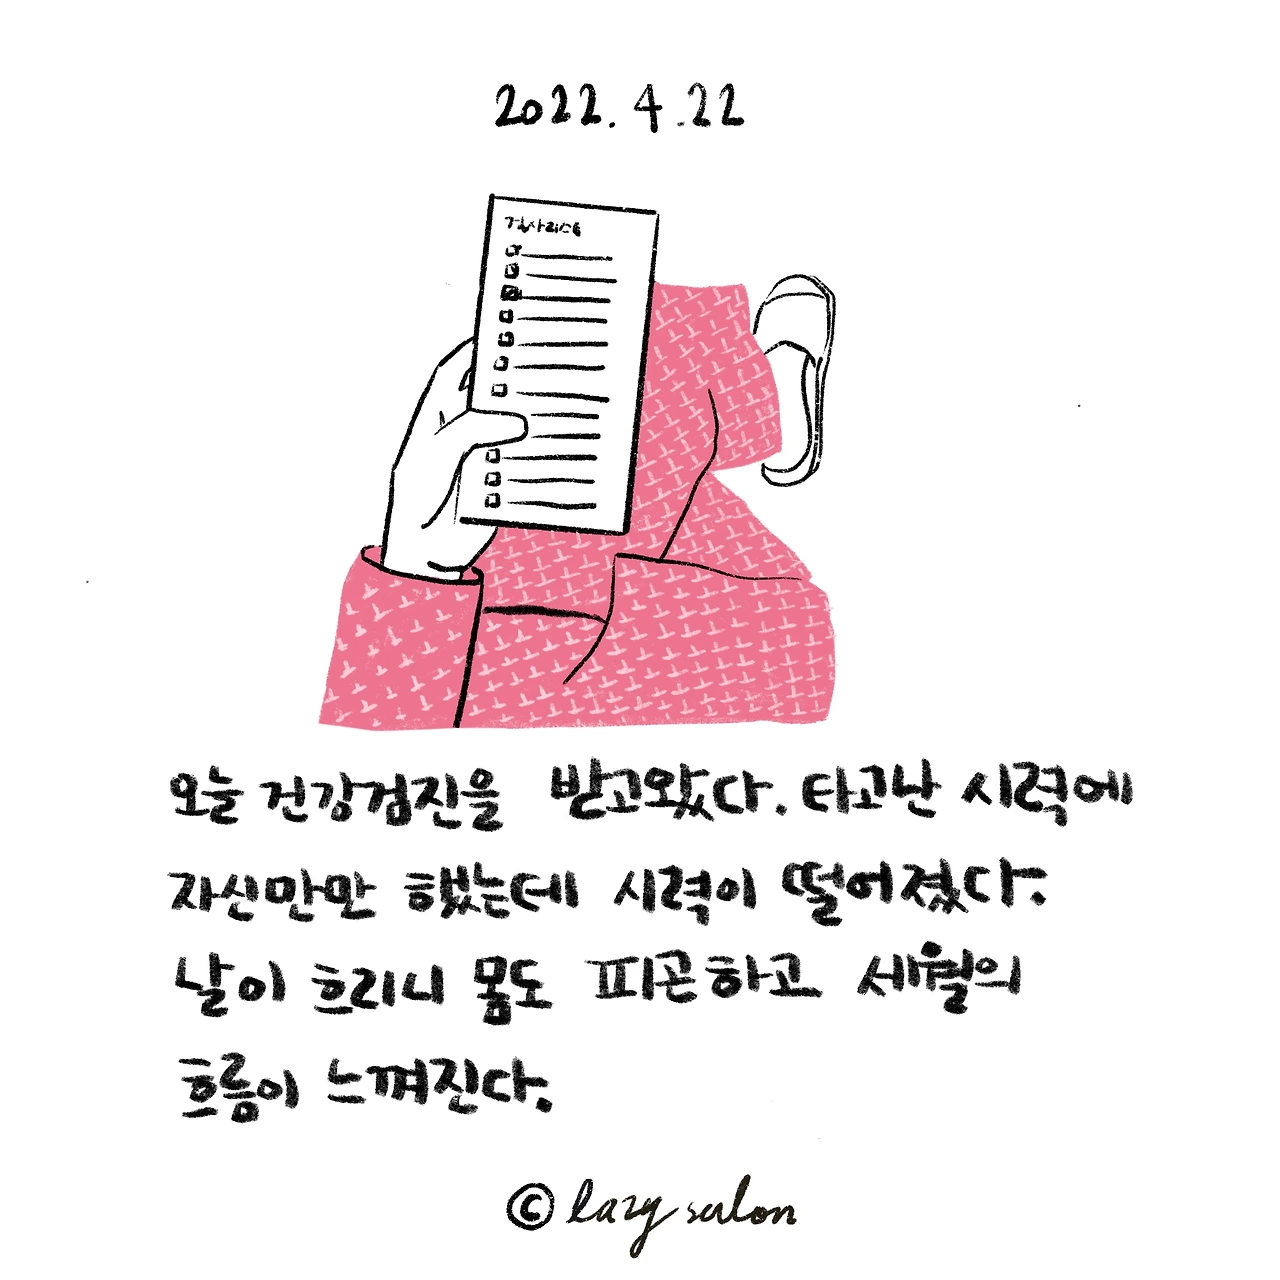 2022. 4. 22
검사리스트
오늘 건강검진을 받고왔다. 타고난 시력에
자신만만 했는데 시력이 떨어졌다.
날이 흐리니 몸도 피곤하고 세월의
흐름이 느껴진다.
© lazy salon